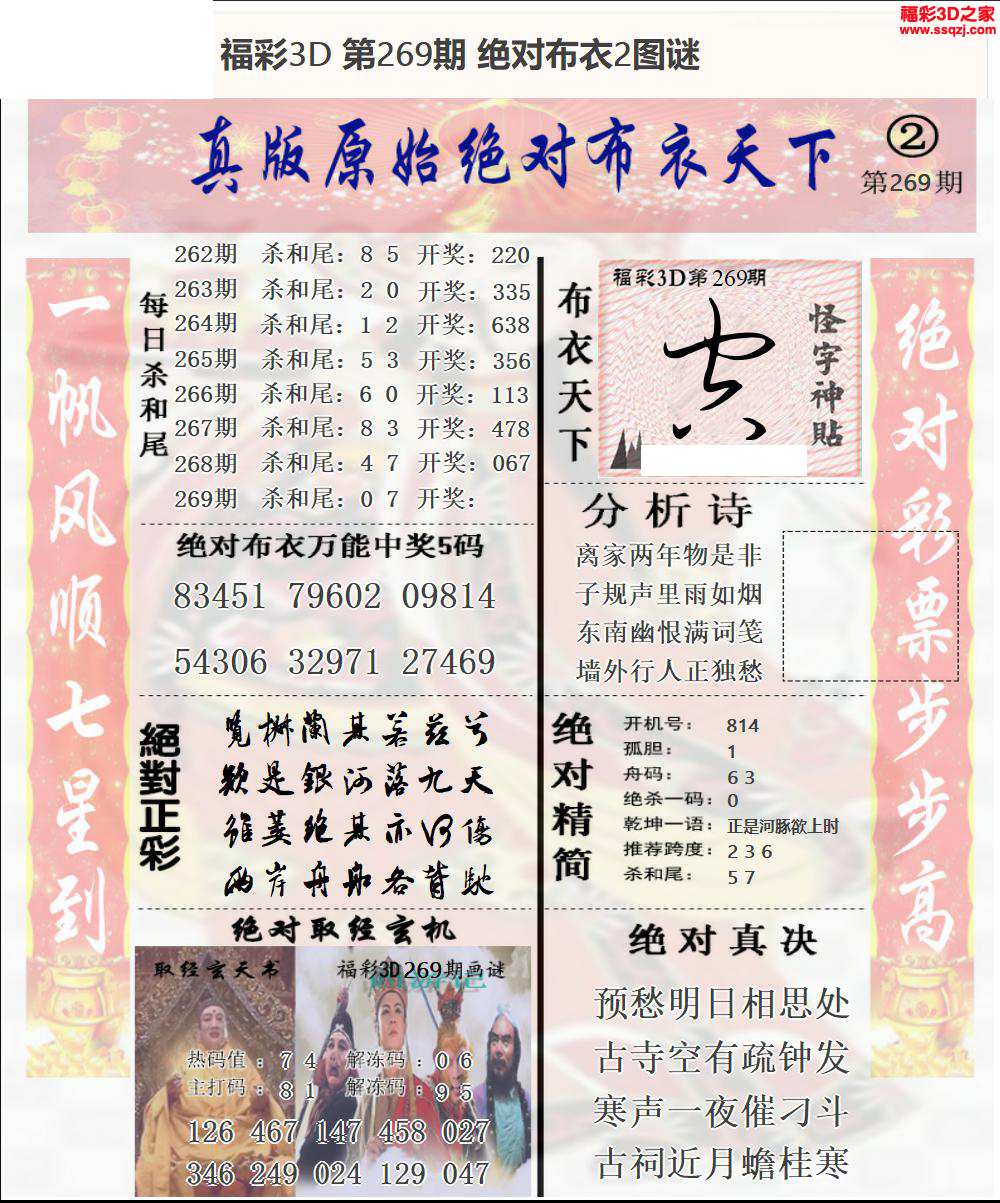 福彩3D之家
www.ssqzj.com
福彩3D 第269期 绝对布衣2图谜
真版原始绝对布衣天下
②
第269期
一帆风顺七星到
每日杀和尾
262期 杀和尾：8 5 开奖：220
263期 杀和尾：2 0 开奖：335
264期 杀和尾：1 2 开奖：638
265期 杀和尾：5 3 开奖：356
266期 杀和尾：6 0 开奖：113
267期 杀和尾：8 3 开奖：478
268期 杀和尾：4 7 开奖：067
269期 杀和尾：0 7 开奖：
绝对布衣万能中奖5码
83451 79602 09814
54306 32971 27469
絕對正彩
覽椒蘭其若茲兮
疑是銀河落九天
雖萎絕其亦何傷
兩岸舟船各背馳
绝对取经玄机
取经玄天书
福彩3D269期画谜
热码值：7 4 解冻码：0 6
主打码：8 1 解冻码：9 5
126 467 147 458 027
346 249 024 129 047
布衣天下
福彩3D第269期
怪字神貼
分析诗
离家两年物是非
子规声里雨如烟
东南幽恨满词笺
墙外行人正独愁
绝对精简
开机号： 814
孤胆： 1
舟码： 6 3
绝杀一码：0
乾坤一语：正是河豚欲上时
推荐跨度：2 3 6
杀和尾： 5 7
绝对真决
预愁明日相思处
古寺空有疏钟发
寒声一夜催刁斗
古祠近月蟾桂寒
绝对彩票步步高